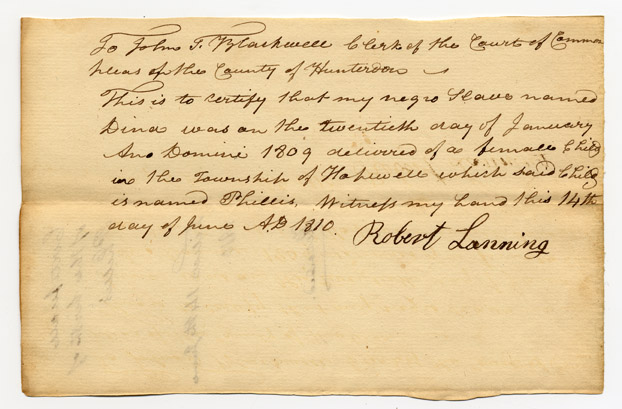 To John T. Blackwell Clerk of the Court of Common
pleas of the County of Hunterdon
This is to certify that my negro Slave named
Dina was on the twentieth day of January
Ano Domini 1809 delivred of a female Child
in the Township of Hopewell which said Child
is named Phillis, Witness my hand this 14th
day of June A.D 1810.
Robert Lanning